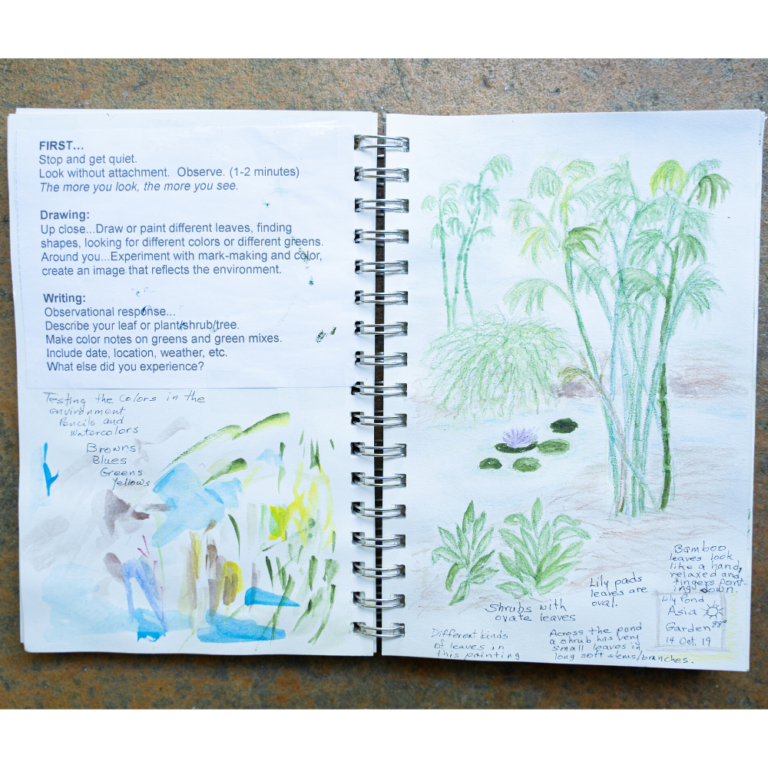 FIRST...
Stop and get quiet.
Look without attachment. Observe. (1-2 minutes)
The more you look, the more you see.
Drawing:
Up close...Draw or paint different leaves, finding
shapes, looking for different colors or different greens.
Around you...Experiment with mark-making and color,
create an image that reflects the environment.
Writing:
Observational response...
Describe your leaf or plant/shrub/tree.
Make color notes on greens and green mixes.
Include date, location, weather, etc.
What else did you experience?
Testing the colors in the
environment
Pencils and
watercolors
Browns
Blues
Greens
Yellows
Bamboo
leaves look
like a hand,
relaxed and
fingers point-
ing down.
Lily pads
leaves are
oval.
Shrubs with
ovate leaves
Different kinds
of leaves in
this painting
Across the pond
a shrub has very
small leaves in
long soft stems/branches.
Lily Pond
Asia
Garden
14 Oct, 19